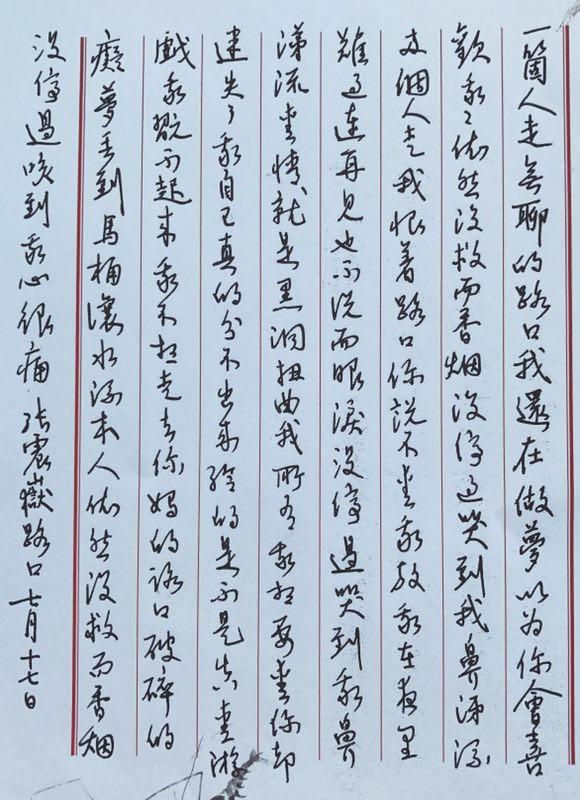 一箇人走無聊的路口我還在做夢以为你會喜
歡我我依然没救而香烟没停过哭到我鼻涕流
支個人走我恨着路口你説不爱我放我在夜里
難过連再見也不说而眼淚没停過哭到我鼻
涕流爱情就是黑洞扭曲我所有我想要爱你却
迷失了我自己真的分不出来给的是不是真爱游
戲我戬不起来我不想走去你妈的路口破碎的
癡夢丢到馬桶讓水流本人依然没救而香烟
没停過咳到我心很痛 张震嶽路口七月十七日